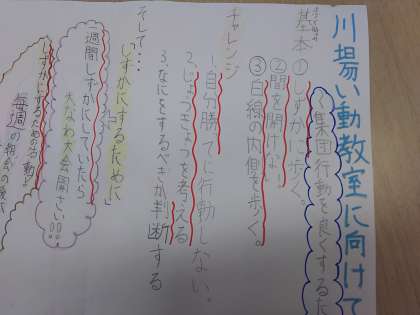 川場い動教室に向けて
集団行動を良くするた
基本
①しずかに歩く。
②間を開けない
③白線の内側を歩く。
チャレンジ
1.自分勝手に行動しない。
2.じょうきょうを考える
3.なにをするべきか判断する
そして…
しずかにするために
一週間しずかにしていたら
大なわ大会開さい!!
しずかにするための活動よ
毎週の朝会の